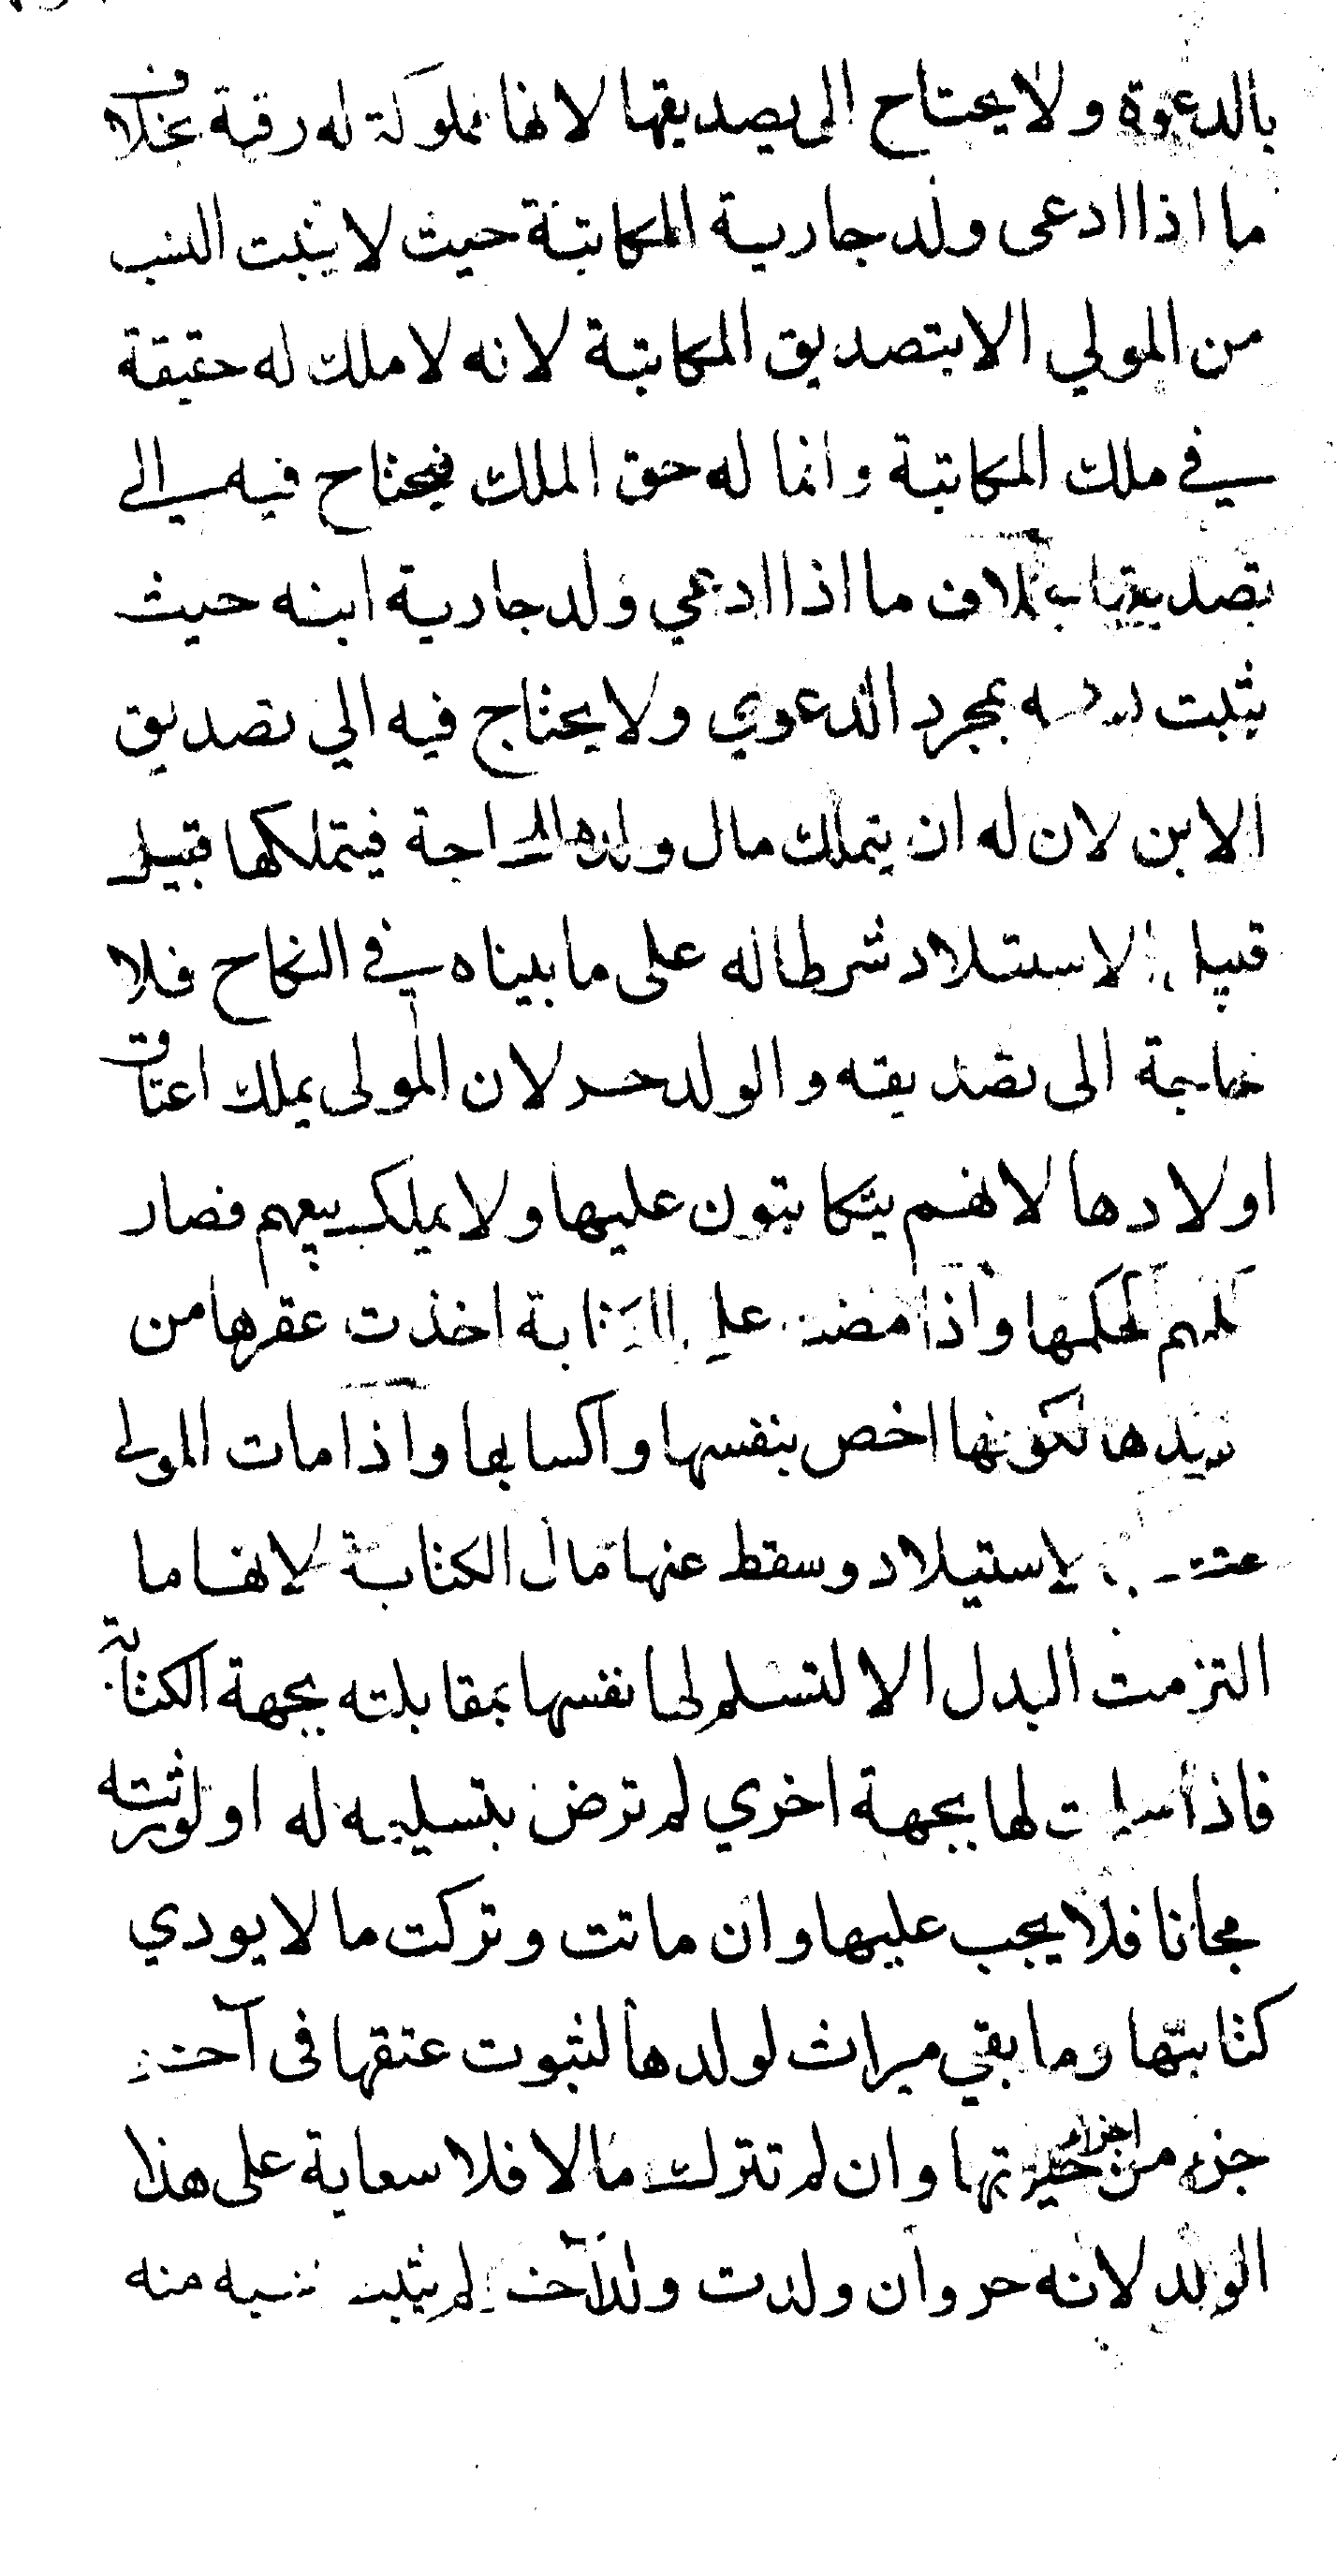 بالدعوة ولا يحتاج الى تصديقها لانها مملوكة له رقبة بخلاف
ما اذا ادعى ولد جارية المكاتبة حيث لا يثبت النسب
من المولي الا بتصديق المكاتبة لانه لا ملك له حقيقة
في ملك المكاتبة وانما له حق الملك فيحتاج فيه الى
تصديقها بخلاف ما اذا ادعي ولد جارية ابنه حيث
يثبت نسبه بمجرد الدعوي ولا يحتاج فيه الي تصديق
الابن لان له ان يتملك مال ولده للحاجة فيتملكها قبيل
قبيل الاستيلاد شرطا له على ما بيناه في النكاح فلا
حاجة الى تصديقه والولد حر لان المولى يملك اعتاق
اولادها لانهم يتكاتبون عليها ولا يملك بيعهم فصار
كلهم لحكمها واذا مضت على الكتابة اخذت عقرها من
سيدها لكونها اخص بنفسها واكسابها واذا مات المولى
عتقت بالاستيلاد وسقط عنها مال الكتابة لانها ما
التزمت البدل الا لتسلم لها نفسها بمقابلته بجهة الكتابة
فاذا سلمت لها بجهة اخري لم ترض بتسليمه له او لورثته
مجانا فلا يجب عليها وان ماتت وتركت مالا يودي
كتابتها وما بقي ميراث لولدها لثبوت عتقها فى آخر
جزء من اجزاء حيوتها وان لم تترك مالا فلا سعاية على هذا
الولد لانه حر وان ولدت ولدا آخر لم يثبت نسبه منه